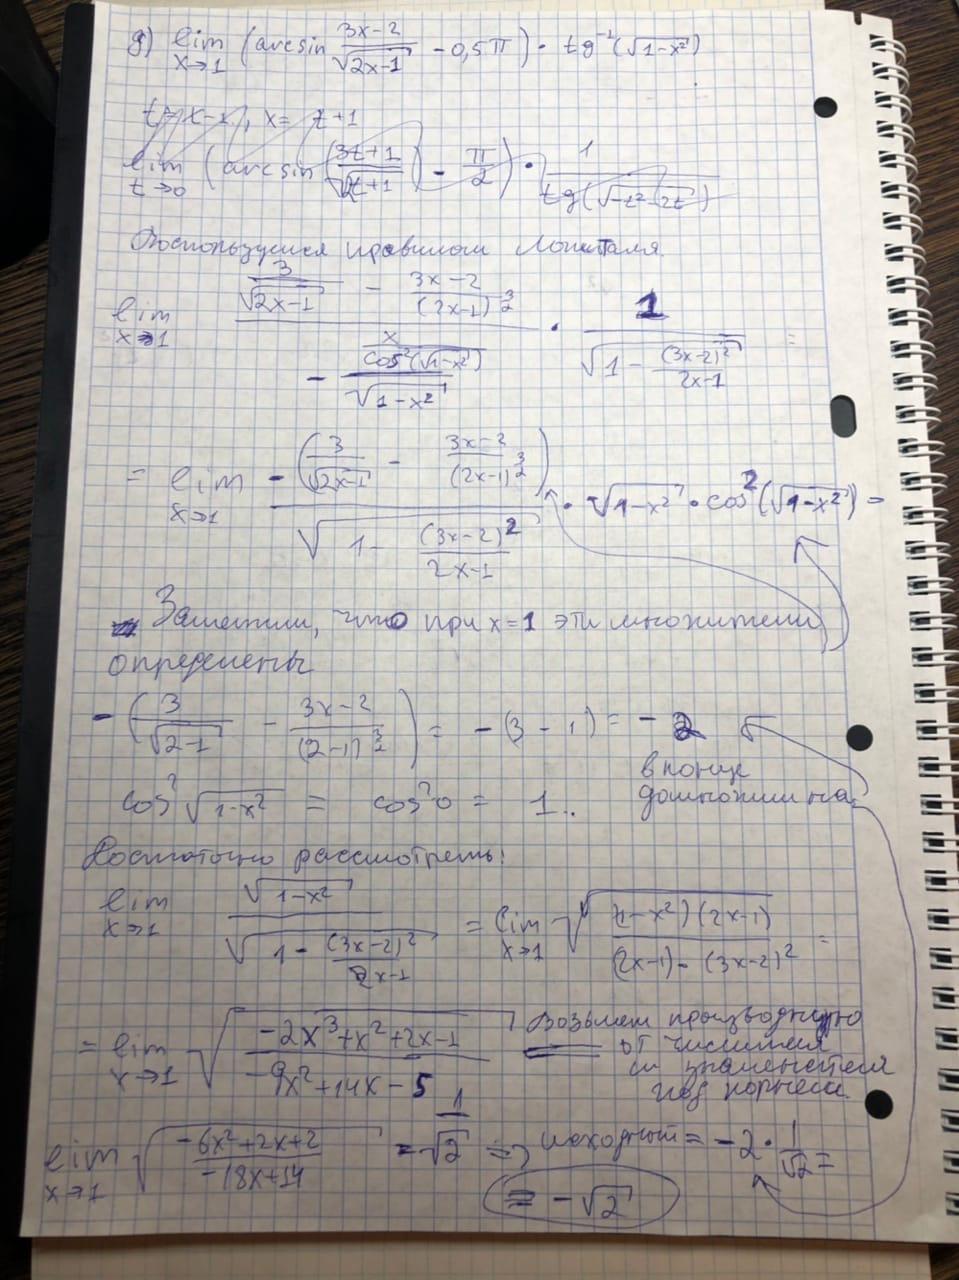 g) lim x→1 (arcsin (3x-2)/√(2x-1) - 0,5π) · tg⁻¹(√(1-x²))
t = x-1, x = t+1
lim t→0 (arcsin (3t+1)/√(2t+1) - π/2) · 1/tg(√(-t²-2t))
Воспользуемся правилом Лопиталя.
lim x→1 (3/√(2x-1) - (3x-2)/(2x-1)^(3/2)) / (- (x/cos²(√(1-x²)))/√(1-x²)) · 1/√(1 - (3x-2)²/(2x-1)) =
= lim x→1 -(3/√(2x-1) - (3x-2)/(2x-1)^(3/2)) / √(1 - (3x-2)²/(2x-1)) · √(1-x²) · cos²(√(1-x²)) =
Заметим, что при x=1 эти множители
определены
-(3/√(2-1) - (3x-2)/(2-1)^(3/2)) = -(3-1) = -2
в конце
домножим на
cos²√(1-x²) = cos²0 = 1..
Достаточно рассмотреть:
lim x→1 √(1-x²) / √(1 - (3x-2)²/(2x-1)) = lim x→1 √((1-x²)(2x-1) / ((2x-1) - (3x-2)²)) =
= lim x→1 √((-2x³+x²+2x-1)/(-9x²+14x-5))
Возьмем производную
от числителя
и знаменателя
под корнем.
lim x→1 √((-6x²+2x+2)/(-18x+14)) = 1/√2 ⇒ исходный = -2 · 1/√2 =
= -√2